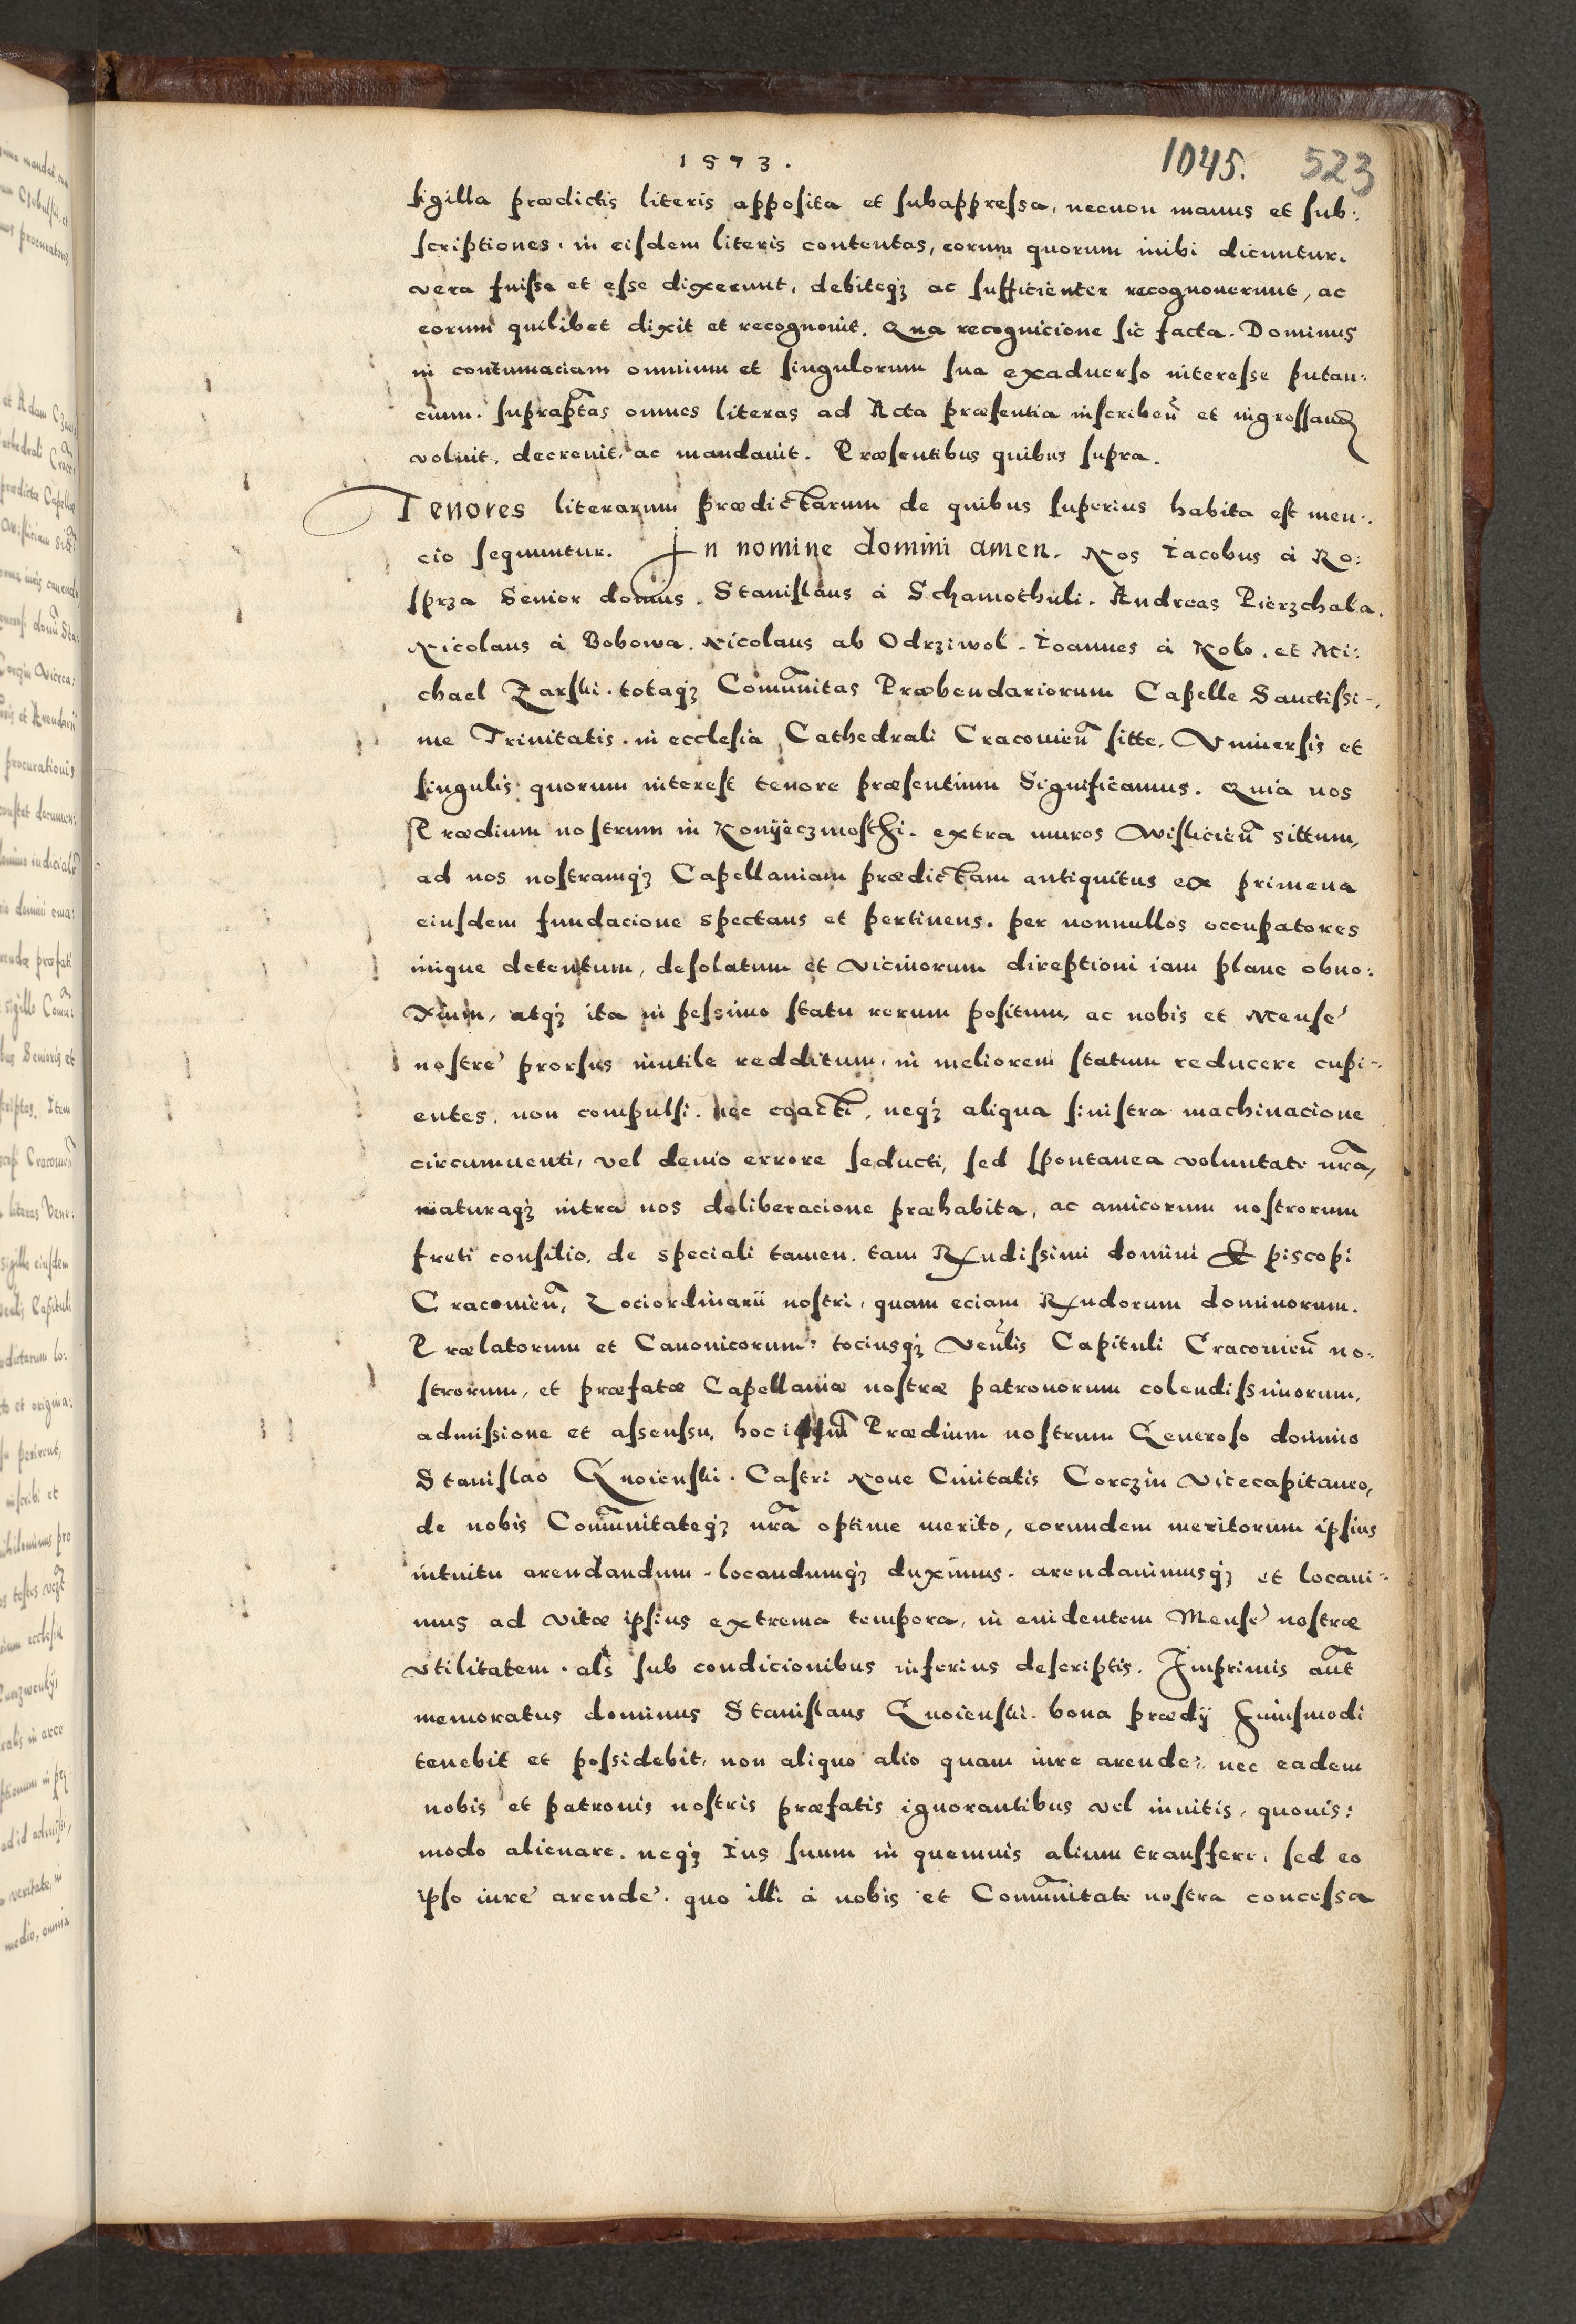 1573.
1045. 523
sigilla prædictis literis apposita et subappressa, necnon manus et sub:
scriptiones, in eisdem literis contentas, eorum quorum inibi dicuntur.
vera fuisse et esse dixerunt, debiteqȝ ac sufficienter recognouerunt, ac
eorum quilibet dixit et recognouit. Qua recognicione sic facta. Dominus
in contumaciam omnium et singulorum sua exaduerso interesse putan:
cium. supraptas omnes literas ad Acta præsentia inscriben̄ et ingrossand
voluit, decreuit, ac mandauit. Præsentibus quibus supra.
Tenores literarum prædictarum de quibus superius habita est men:
cio sequuntur. In nomine domini amen. Nos Iacobus à Ro:
sprza Senior domus. Stanislaus à Schamothuli. Andreas Pierzchala.
Nicolaus à Bobowa. Nicolaus ab Odrziwol. Ioannes à Kolo. et Mi:
chael Zarski. totaqȝ Com̄unitas Præbendariorum Capelle Sanctissi-
me Trinitatis. in ecclesia Cathedrali Cracouien̄ sitte. Vniuersis et
singulis quorum interest tenore præsentium Significamus. Quia nos
Prædium nostrum in Konyeczmosthi. extra muros Wislicien̄ sittum,
ad nos nostramqȝ Capellaniam prædictam antiquitus ex primeua
eiusdem fundacione spectans et pertinens. per nonnullos occupatores
inique detentum, desolatum et vicinorum direptioni iam plane obno:
xium, atqȝ ita in pessimo statu rerum positum, ac nobis et Mense
nostre prorsus inutile redditum, in meliorem statum reducere cupi-
entes. non compulsi. nec coacti, neqȝ aliqua sinistra machinacione
circumuenti, vel deuio errore seducti, sed spontanea voluntate nr̄a,
maturaqȝ intra nos deliberacione præhabita, ac amicorum nostrorum
freti consilio, de speciali tamen. tam Rñdissimi domini Episcopi
Cracouien̄, Lociordinarii nostri, quam eciam Rñdorum dominorum.
Prælatorum et Canonicorum: tociusqȝ Ven̄lis Capituli Cracouien̄ no:
strorum, et præfatæ Capellaniæ nostræ patronorum colendissimorum,
admissione et assensu, hoc Prædium nostrum Generoso domino
Stanislao Gnoienski. Castri Noue Ciuitatis Corczin Vicecapitaneo,
de nobis Com̄unitateqȝ nr̄a optime merito, eorundem meritorum ipsius
intuitu arendandum. locandumqȝ duximus. arendauimusqȝ et locaui-
mus ad vitæ ipsius extrema tempora, in euidentem Mense nostræ
vtilitatem. als sub condicionibus inferius descriptis. Imprimis aūt
memoratus dominus Stanislaus Gnoienski. bona prædij huiusmodi
tenebit et possidebit, non aliquo alio quam iure arende: nec eadem
nobis et patronis nostris præfatis ignorantibus vel inuitis, quouis:
modo alienare. neqȝ Ius suum in quemuis alium transferre, sed eo
ipso iure arende. quo illi à nobis et Com̄unitate nostra concessa